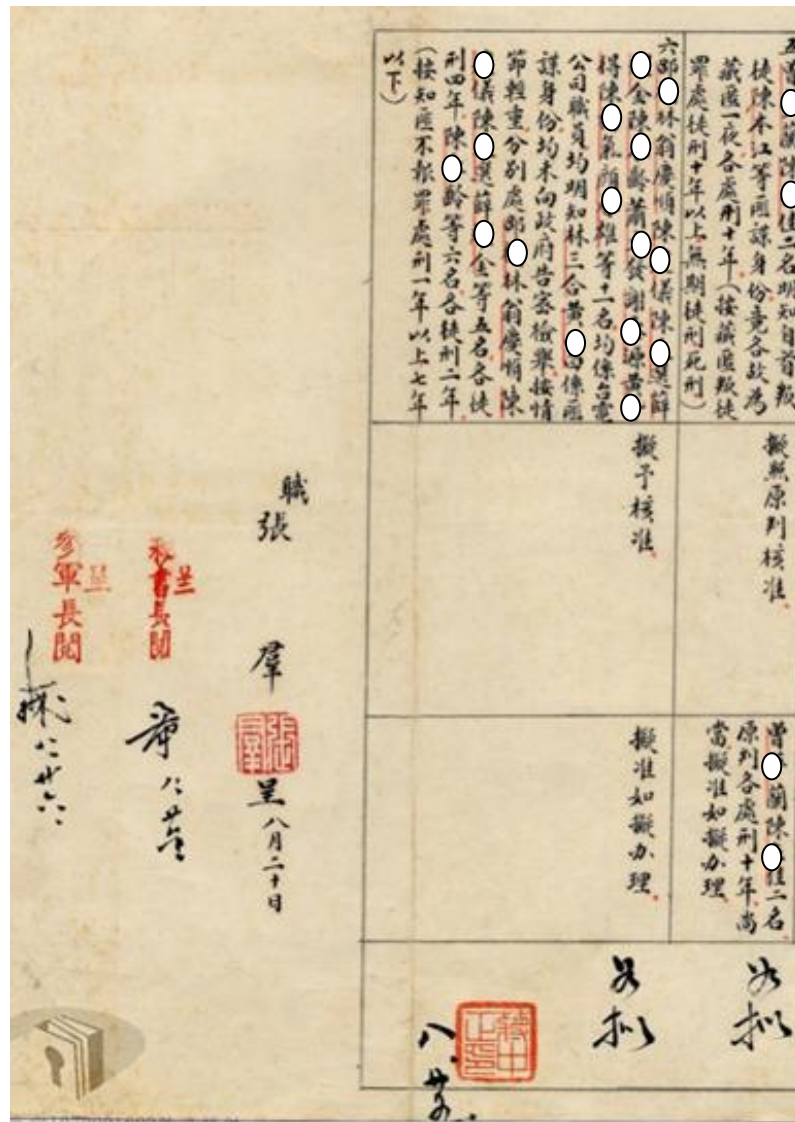 五曾○蘭陳○佳二名明知自首叛
徒陳本江等匪諜身份竟各故為
藏匿一夜各處刑十年(按藏匿叛徒
罪處徒刑十年以上無期徒刑死刑)
擬照原判核准
曾○蘭陳○佳二名
原判各處刑十年尚
當擬准如擬办理
如拟
六邱○林翁慶順陳○儀陳○選薛
○金陳○齡蕭○發謝○源黃○
得陳○氣顏○雄等十二名均係台電
公司職員均明知林三合黃○田係匪
諜身份均未向政府告密檢舉按情
節輕重分別處邱○林翁慶順陳
○儀陳○選薛○金等五名各徒
刑四年陳○齡等六名各徒刑二年
(按知匪不報罪處刑一年以上七年
以下)
擬予核准
擬准如擬办理
如拟
蔣中正印
職張羣
張羣
呈八月二十日
呈
秘書長閱
呈
參軍長閱
八廿六